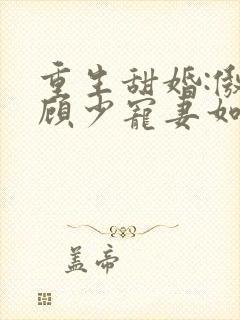 重生甜婚:
顾少寵妻如
盖帝